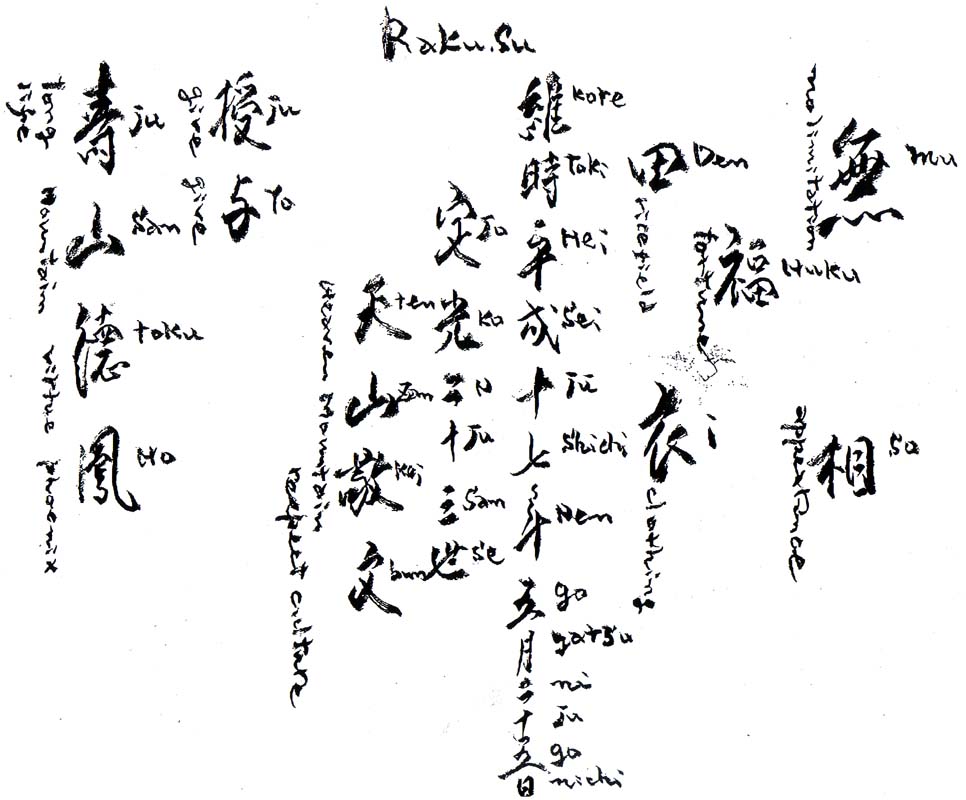 Raku.Su
無相
mu so
no limitation appearance
福
Huku
fortune
田衣
Den i
rice field clothing
維時平成十七年五月二十五日
Kore toki Hei Sei ju Shichi Nen go gatsu ni ju go nichi
光二十三世
ko ni ju San se
天山敬文
ten zan Kei bun
Heaven Mountain respect culture
授与
ju yo
give give
壽山德鳳
ju San toku Ho
long life Mountain virtue phoenix